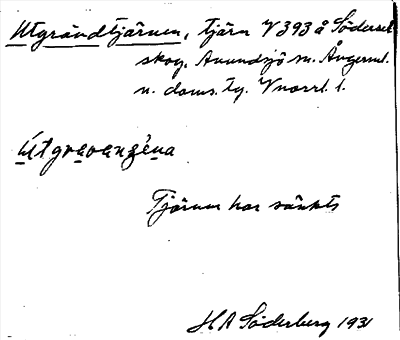 Utgrändtjärnen, tjärn V 393 å Södersel
skog. Anundsjö sn. Ångerml.
n. doms. tg. Vnorrl. l.
Tjärnen har sänkts
HA Söderberg 1931